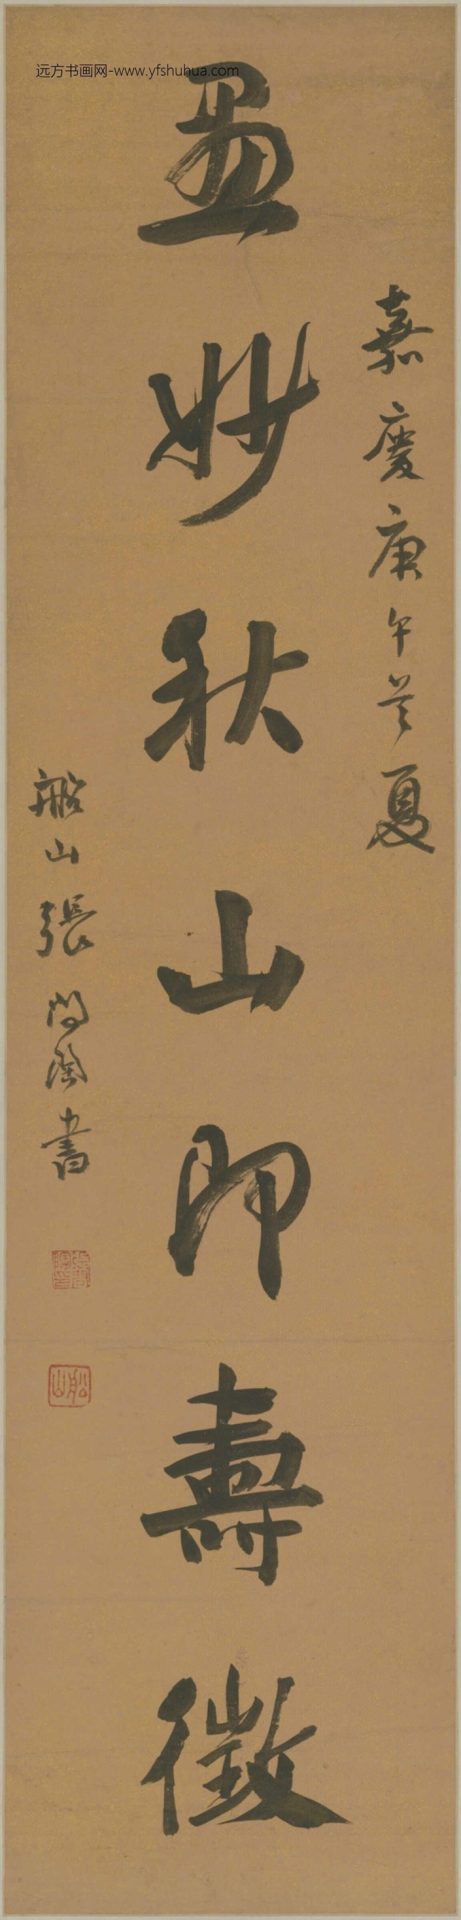 远方书画网-www.yfshuhua.com
嘉慶庚午首夏
畫妙秋山即壽徵
船山張問陶書
張問陶印
船山